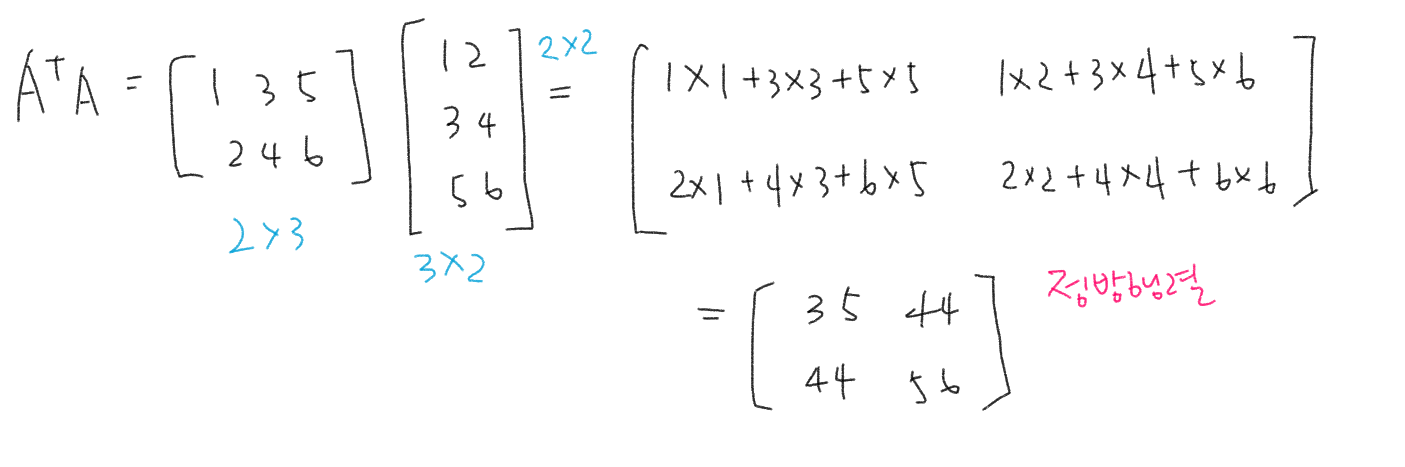 AᵀA = [1 3 5 2 4 6] [1 2 3 4 5 6] 2×2 = [1×1+3×3+5×5 1×2+3×4+5×6
2×1+4×3+6×5 2×2+4×4+6×6]
2×3 3×2
= [35 44 44 56] 정방행렬